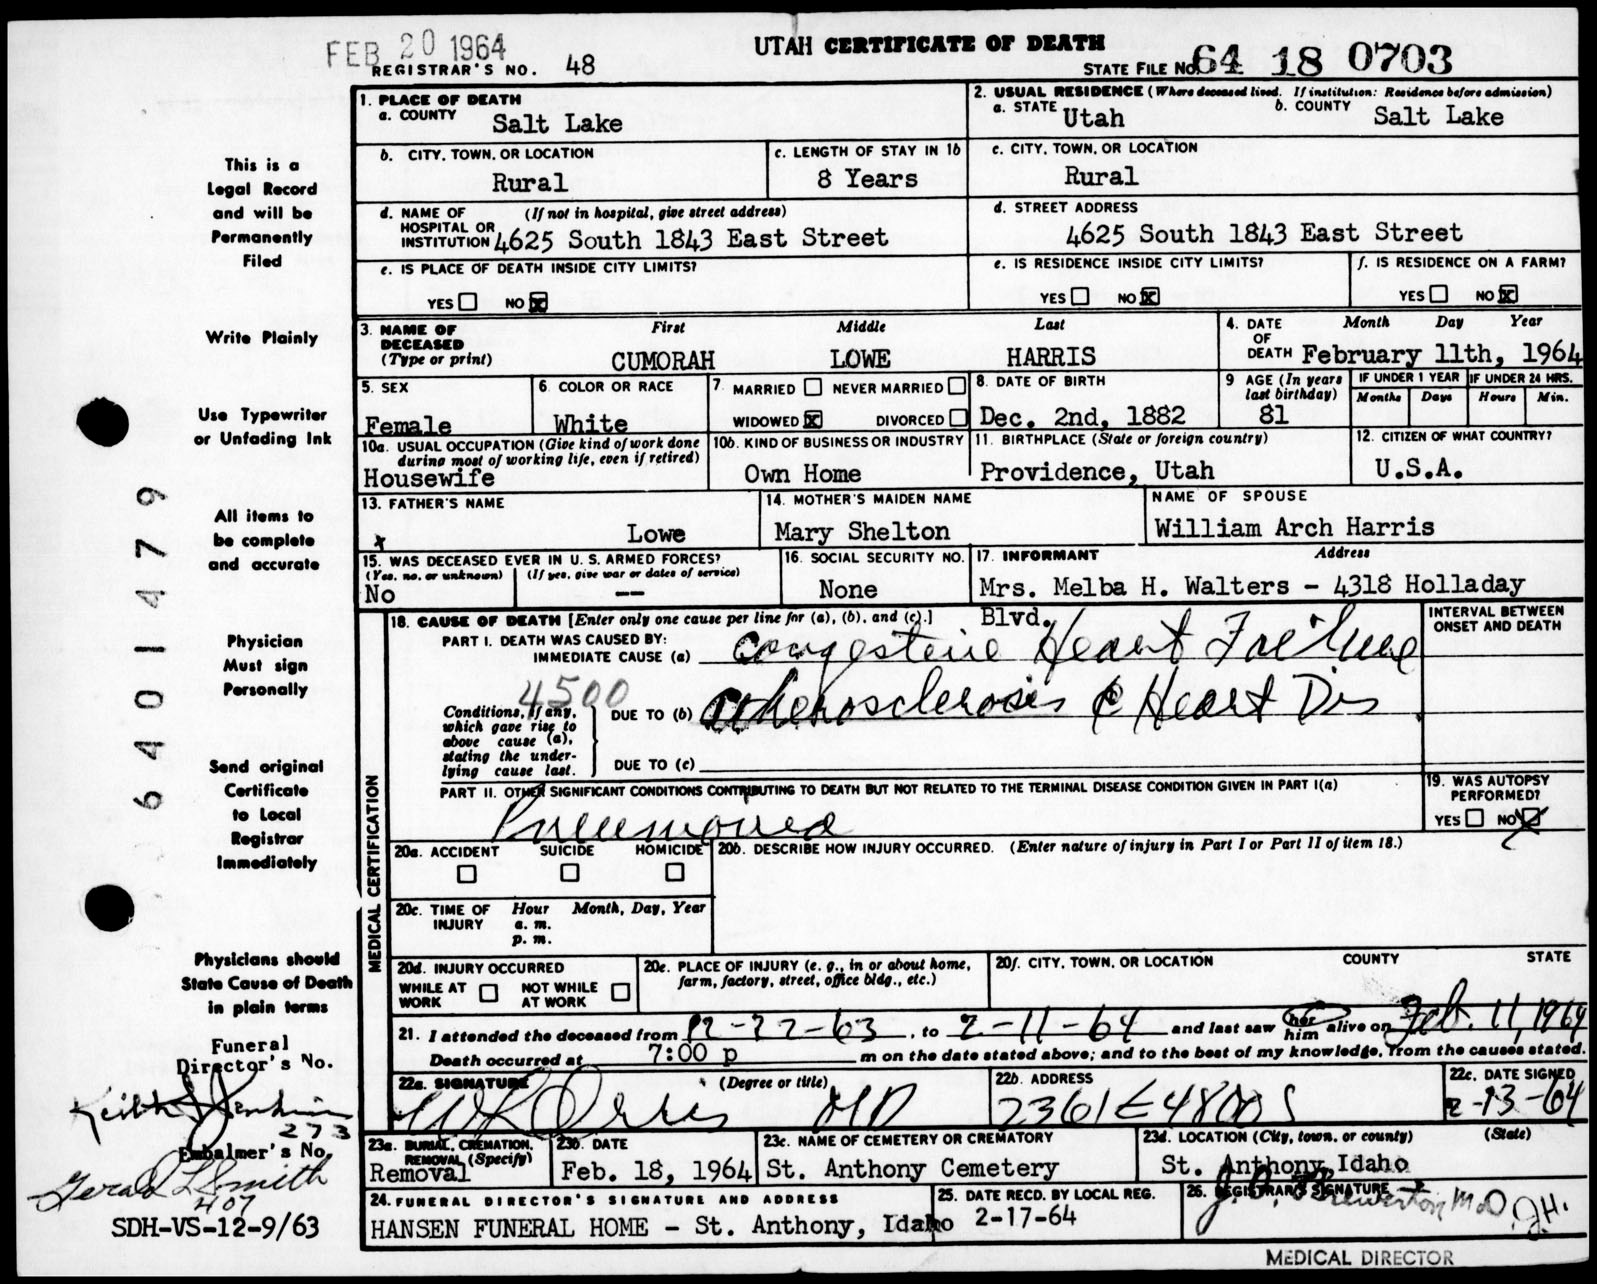 FEB 20 1964
UTAH CERTIFICATE OF DEATH
REGISTRAR'S NO. 48
STATE FILE No. 64 18 0703
1. PLACE OF DEATH
a. COUNTY Salt Lake
2. USUAL RESIDENCE (Where deceased lived. If institution: Residence before admission)
a. STATE Utah b. COUNTY Salt Lake
b. CITY, TOWN, OR LOCATION Rural
c. LENGTH OF STAY IN 1b 8 Years
c. CITY, TOWN, OR LOCATION Rural
d. NAME OF HOSPITAL OR INSTITUTION (If not in hospital, give street address) 4625 South 1843 East Street
d. STREET ADDRESS 4625 South 1843 East Street
e. IS PLACE OF DEATH INSIDE CITY LIMITS?
YES NO X
e. IS RESIDENCE INSIDE CITY LIMITS?
YES NO X
f. IS RESIDENCE ON A FARM?
YES NO X
3. NAME OF DECEASED (Type or print)
First Middle Last
CUMORAH LOWE HARRIS
4. DATE OF DEATH Month Day Year
February 11th, 1964
5. SEX Female
6. COLOR OR RACE White
7. MARRIED NEVER MARRIED
WIDOWED X DIVORCED
8. DATE OF BIRTH Dec. 2nd, 1882
9 AGE (In years last birthday) 81
IF UNDER 1 YEAR Months Days
IF UNDER 24 HRS. Hours Min.
10a. USUAL OCCUPATION (Give kind of work done during most of working life, even if retired)
Housewife
10b. KIND OF BUSINESS OR INDUSTRY
Own Home
11. BIRTHPLACE (State or foreign country)
Providence, Utah
12. CITIZEN OF WHAT COUNTRY?
U.S.A.
13. FATHER'S NAME
Lowe
14. MOTHER'S MAIDEN NAME
Mary Shelton
NAME OF SPOUSE
William Arch Harris
15. WAS DECEASED EVER IN U. S. ARMED FORCES?
(Yes, no, or unknown) (If yes, give war or dates of service)
No --
16. SOCIAL SECURITY NO.
None
17. INFORMANT Address
Mrs. Melba H. Walters - 4318 Holladay
Blvd.
18. CAUSE OF DEATH [Enter only one cause per line for (a), (b), and (c).]
PART I. DEATH WAS CAUSED BY:
IMMEDIATE CAUSE (a) Congestive Heart Failure
4500
Conditions, if any, which gave rise to above cause (a), stating the underlying cause last.
DUE TO (b) Atherosclerosis c Heart Dis
DUE TO (c)
INTERVAL BETWEEN ONSET AND DEATH
PART II. OTHER SIGNIFICANT CONDITIONS CONTRIBUTING TO DEATH BUT NOT RELATED TO THE TERMINAL DISEASE CONDITION GIVEN IN PART I(a)
Pneumonia
19. WAS AUTOPSY PERFORMED?
YES NO X
MEDICAL CERTIFICATION
20a. ACCIDENT SUICIDE HOMICIDE
20b. DESCRIBE HOW INJURY OCCURRED. (Enter nature of injury in Part I or Part II of item 18.)
20c. TIME OF INJURY Hour Month, Day, Year
a. m.
p. m.
20d. INJURY OCCURRED
WHILE AT WORK NOT WHILE AT WORK
20e. PLACE OF INJURY (e. g., in or about home, farm, factory, street, office bldg., etc.)
20f. CITY, TOWN, OR LOCATION COUNTY STATE
21. I attended the deceased from 12-22-63, to 2-11-64 and last saw her him alive on Feb. 11, 1964
Death occurred at 7:00 p m on the date stated above; and to the best of my knowledge, from the causes stated.
22a. SIGNATURE (Degree or title)
MD
22b. ADDRESS
2361 E 4800 S
22c. DATE SIGNED
2-13-64
23a. BURIAL, CREMATION, REMOVAL (Specify)
Removal
23b. DATE
Feb. 18, 1964
23c. NAME OF CEMETERY OR CREMATORY
St. Anthony Cemetery
23d. LOCATION (City, town, or county) (State)
St. Anthony, Idaho
24. FUNERAL DIRECTOR'S SIGNATURE AND ADDRESS
HANSEN FUNERAL HOME - St. Anthony, Idaho
25. DATE RECD. BY LOCAL REG.
2-17-64
26. REGISTRAR'S SIGNATURE
M.D. J.H.
MEDICAL DIRECTOR
This is a
Legal Record
and will be
Permanently
Filed
Write Plainly
Use Typewriter
or Unfading Ink
All items to
be complete
and accurate
Physician
Must sign
Personally
Send original
Certificate
to Local
Registrar
Immediately
Physicians should
State Cause of Death
in plain terms
Funeral
Director's No.
Keith Jenkins
273
Embalmer's No.
Gerald L Smith
407
SDH-VS-12-9/63
6401479